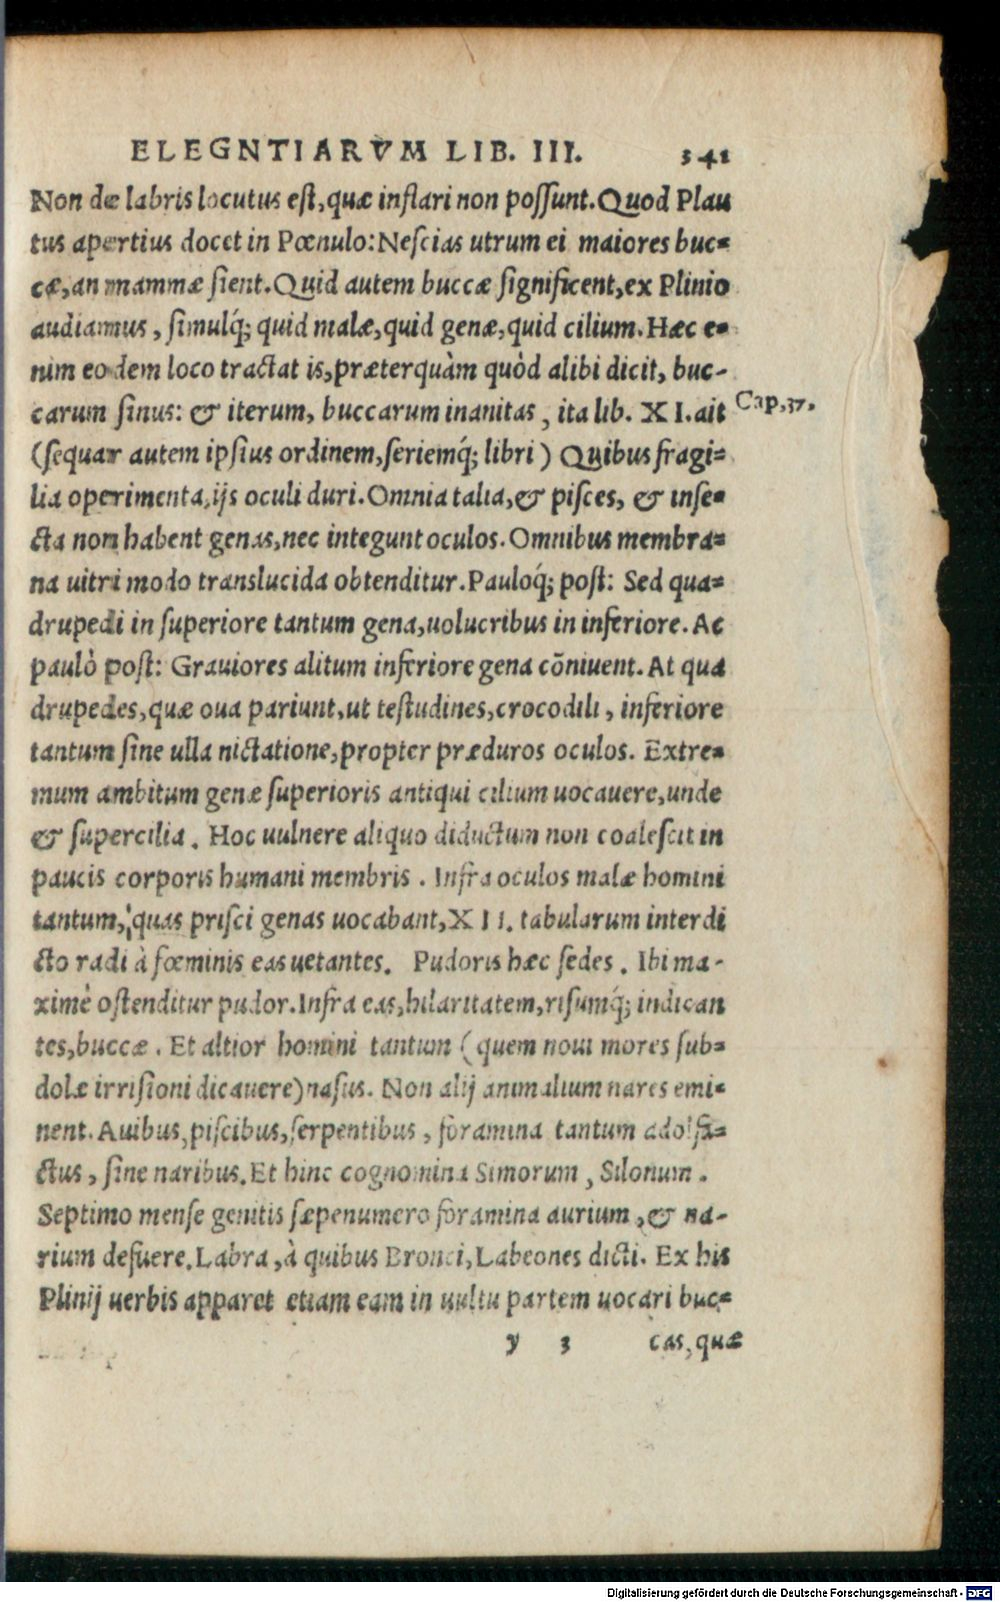 ELEGNTIARVM LIB. III. 341
Non de labris locutus est, quæ inflari non possunt. Quod Plau
tus apertius docet in Pœnulo: Nescias utrum ei maiores buc=
cæ, an mammæ sient. Quid autem buccæ significent, ex Plinio
audiamus, simulq́; quid malæ, quid genæ, quid cilium. Hæc e=
nim eodem loco tractat is, præterquàm quòd alibi dicit, buc-
carum sinus: & iterum, buccarum inanitas, ita lib. XI. ait
Cap. 37.
(sequar autem ipsius ordinem, seriemq́; libri) Quibus fragi=
lia operimenta, ijs oculi duri. Omnia talia, & pisces, & inse=
cta non habent genas, nec integunt oculos. Omnibus membra=
na uitri modo translucida obtenditur. Pauloq́; post: Sed qua=
drupedi in superiore tantum gena, uolucribus in inferiore. Ac
paulò post: Grauiores alitum inferiore gena cōniuent. At qua
drupedes, quæ oua pariunt, ut testudines, crocodili, inferiore
tantum sine ulla nictatione, propter præduros oculos. Extre=
mum ambitum genæ superioris antiqui cilium uocauere, unde
& supercilia. Hoc uulnere aliquo diductum non coalescit in
paucis corporis humani membris. Infra oculos malæ homini
tantum, quas prisci genas uocabant, XII. tabularum interdi
cto radi à fœminis eas uetantes. Pudoris hæc sedes. Ibi ma-
ximè ostenditur pudor. Infra eas, hilaritatem, risumq́; indican
tes, buccæ. Et altior homini tantum (quem noui mores sub=
dolæ irrisioni dicauere) nasus. Non alij animalium nares emi=
nent. Auibus, piscibus, serpentibus, foramina tantum adolfa=
ctus, sine naribus. Et hinc cognomina Simorum, Silonum.
Septimo mense genitis sæpenumero foramina aurium, & na-
rium defuere. Labra, à quibus Bronci, Labeones dicti. Ex his
Plinij uerbis apparet etiam eam in uultu partem uocari buc=
y 3 cas, quæ
Digitalisierung gefördert durch die Deutsche Forschungsgemeinschaft - DFG